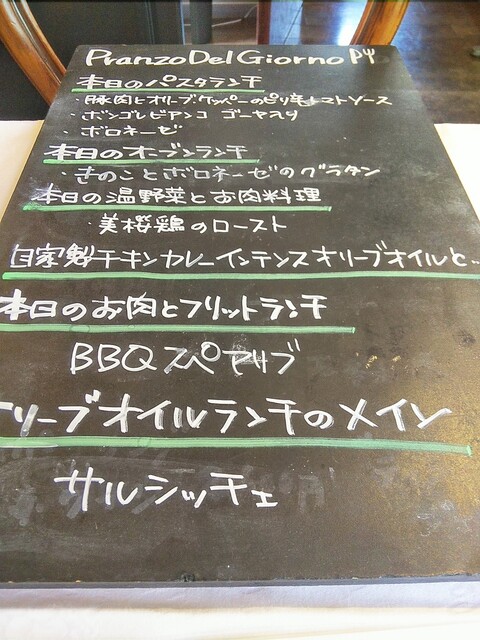 Pranzo Del Giorno
本日のパスタランチ
・豚肉とオリーブ、ケッパーのピリ辛トマトソース
・ボンゴレビアンコ ゴーヤ入り
・ボロネーゼ
本日のオーブンランチ
・きのことボロネーゼのグラタン
本日の温野菜とお肉料理
・美桜鶏のロースト
自家製チキンカレーインテンスオリーブオイルと..
本日のお肉とフリットランチ
BBQスペアリブ
オリーブオイルランチのメイン
サルシッチェ